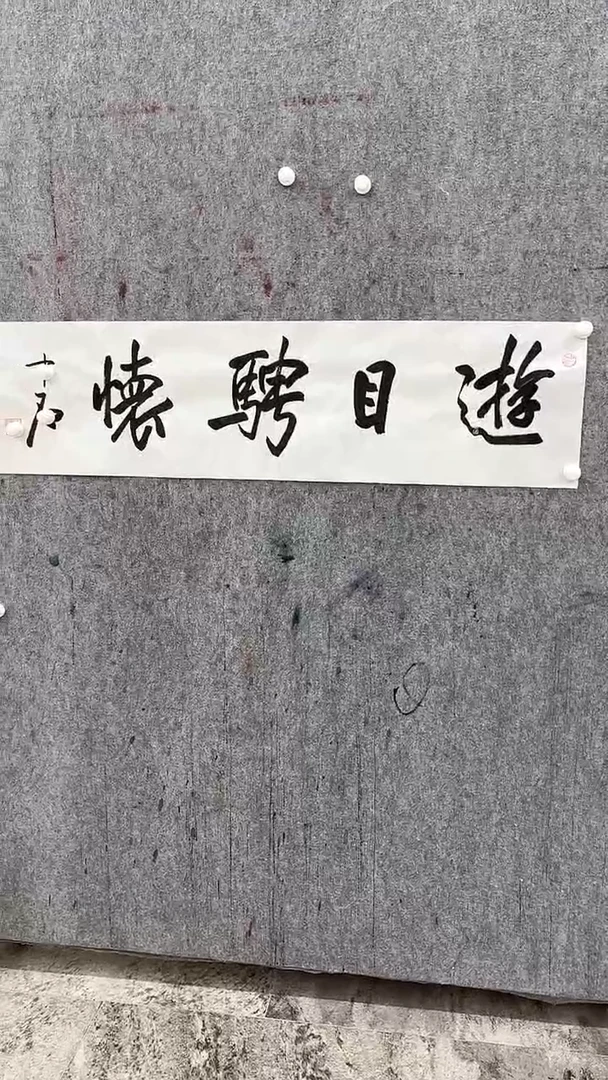 遊目騁懷